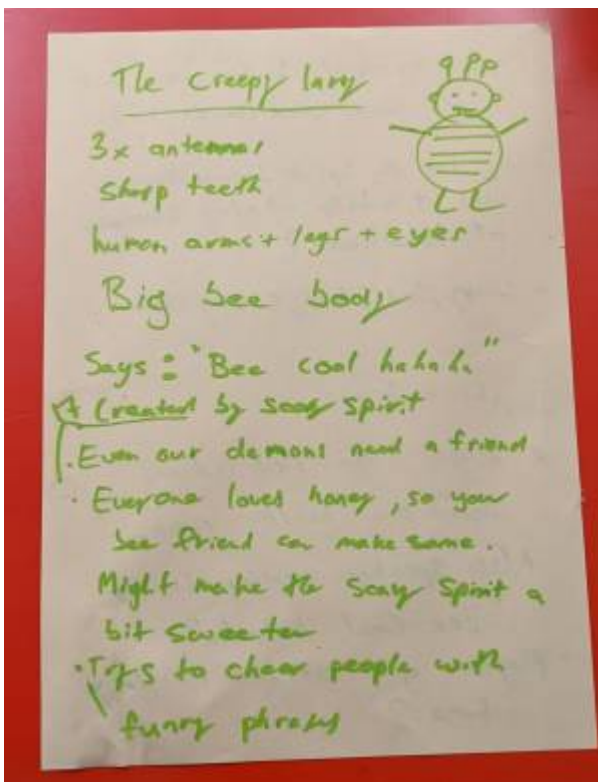 The creepy
3x antennas
sharp teeth
human arms + legs + eyes
Big bee body
Says : "Bee cool hahaha"
Created by scary spirit
· Even our demons need a friend
· Everyone loves honey, so your
bee friend can make some.
Might make the scary spirit a
bit sweeter
· Trys to cheer people with
funny phrases